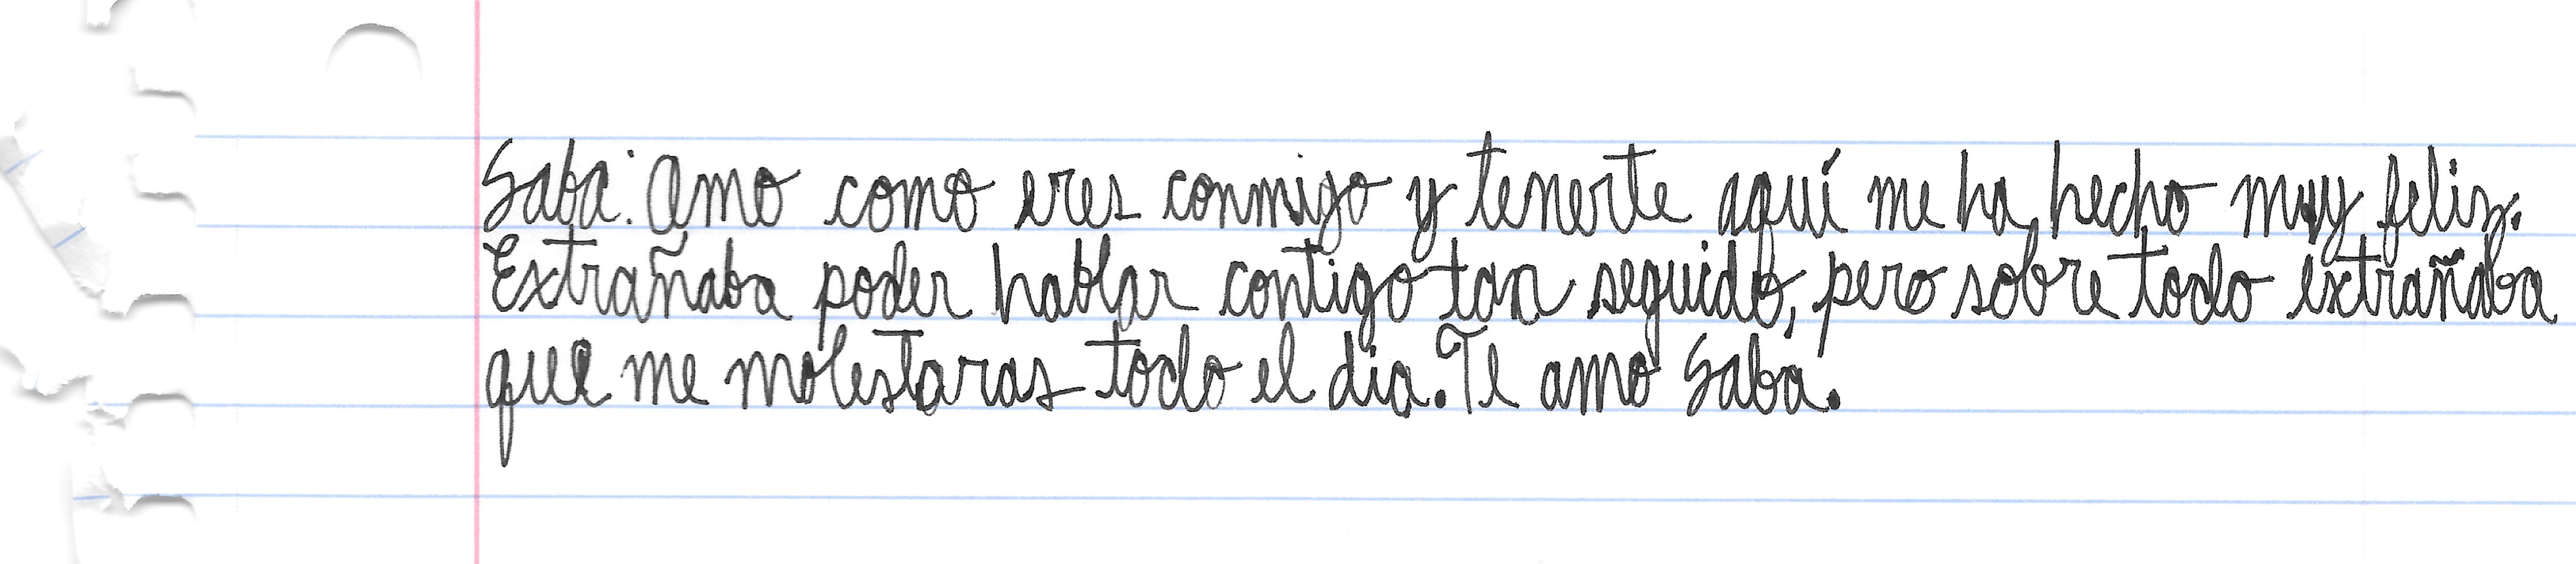 Saba: Amo como eres conmigo y tenerte aquí me ha hecho muy feliz.
Extrañaba poder hablar contigo tan seguido, pero sobre todo extrañaba
que me molestaras todo el dia. Te amo Saba.